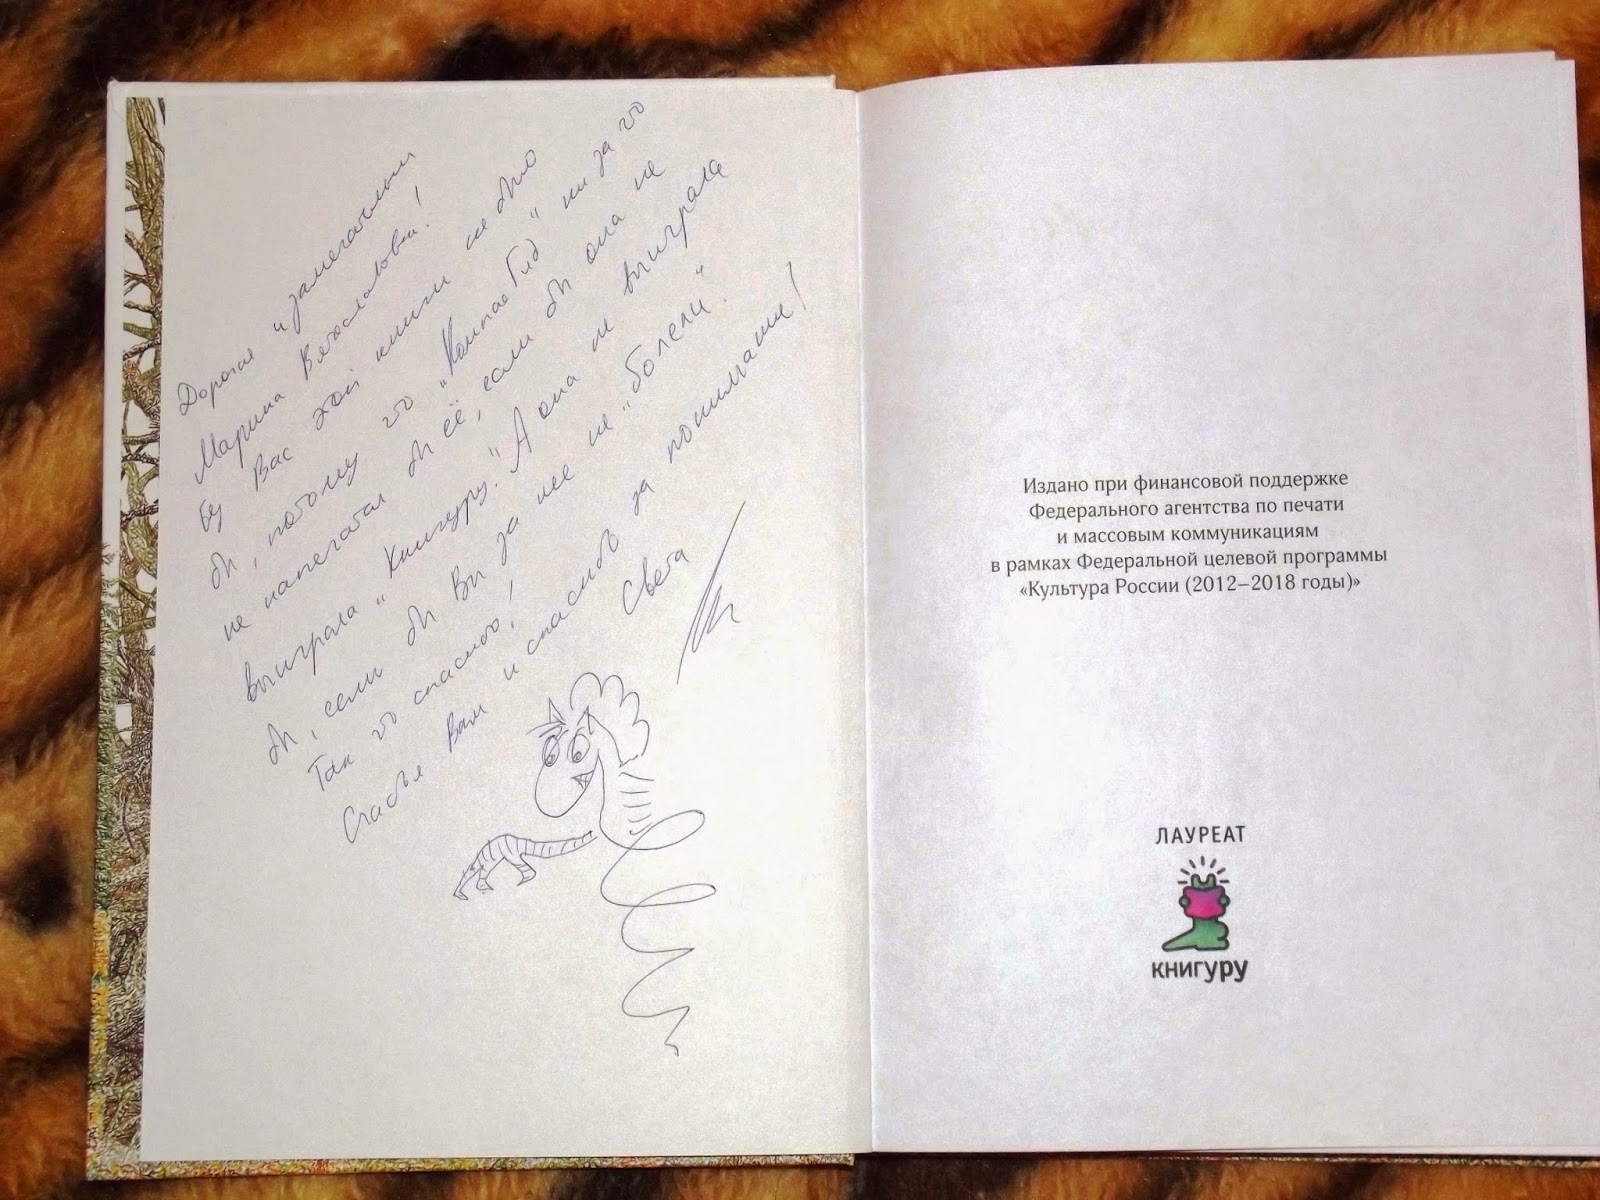 Дорогая и замечательная
Марина Вячеславовна!
без Вас этой книги не было
бы, потому что "КомпасГид" ни за что
не напечатал бы её, если бы она не
выиграла "Книгуру". А она не выиграла
бы, если бы Вы за нее не "болели".
Так что спасибо!
Счастья Вам и спасибо за понимание!
Света
Издано при финансовой поддержке
Федерального агентства по печати
и массовым коммуникациям
в рамках Федеральной целевой программы
«Культура России (2012–2018 годы)»
ЛАУРЕАТ
книгуру